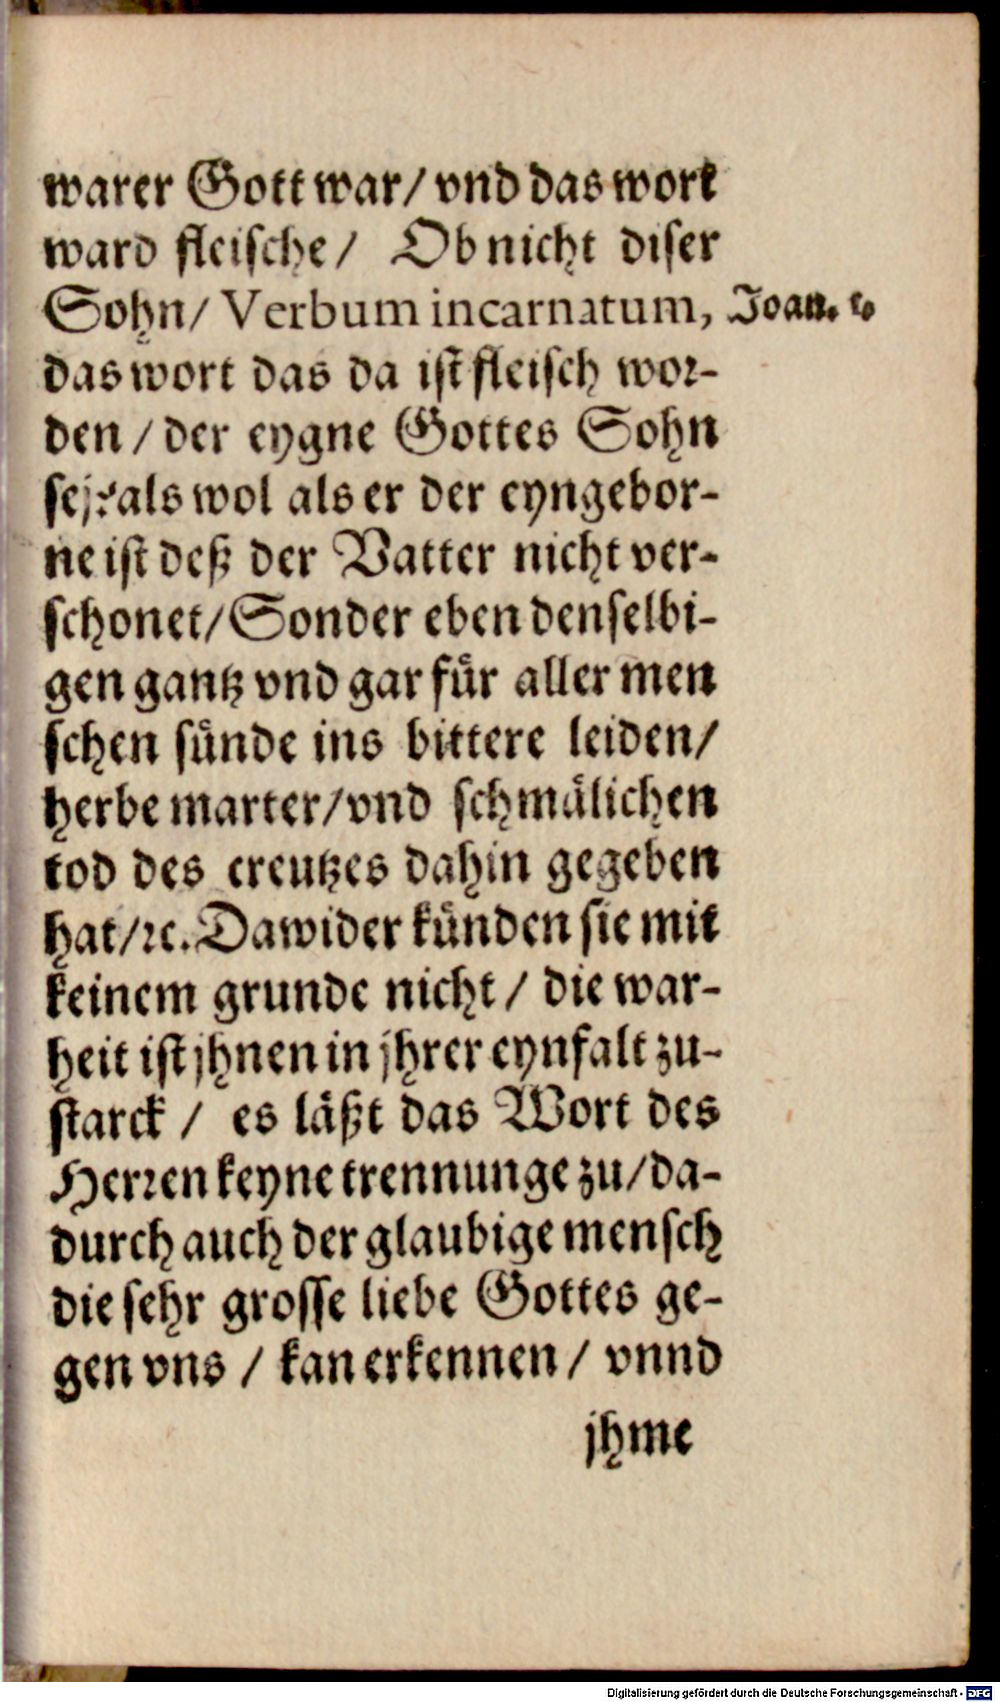 warer Gott war/ vnd das wort
ward fleische/ Ob nicht diser
Sohn/ Verbum incarnatum,
Joan. 1.
das wort das da ist fleisch wor-
den/ der eygne Gottes Sohn
sey: als wol als er der eyngebor-
ne ist deß der Vatter nicht ver-
schonet/ Sonder eben denselbi-
gen gantz vnd gar für aller men
schen sünde ins bittere leiden/
herbe marter/ vnd schmälichen
tod des creutzes dahin gegeben
hat/ ꝛc. Dawider künden sie mit
keinem grunde nicht/ die war-
heit ist jhnen in jhrer eynfalt zu-
starck/ es läßt das Wort des
Herren keyne trennunge zu/ da-
durch auch der glaubige mensch
die sehr grosse liebe Gottes ge-
gen vns/ kan erkennen/ vnnd
jhme
Digitalisierung gefördert durch die Deutsche Forschungsgemeinschaft - DFG